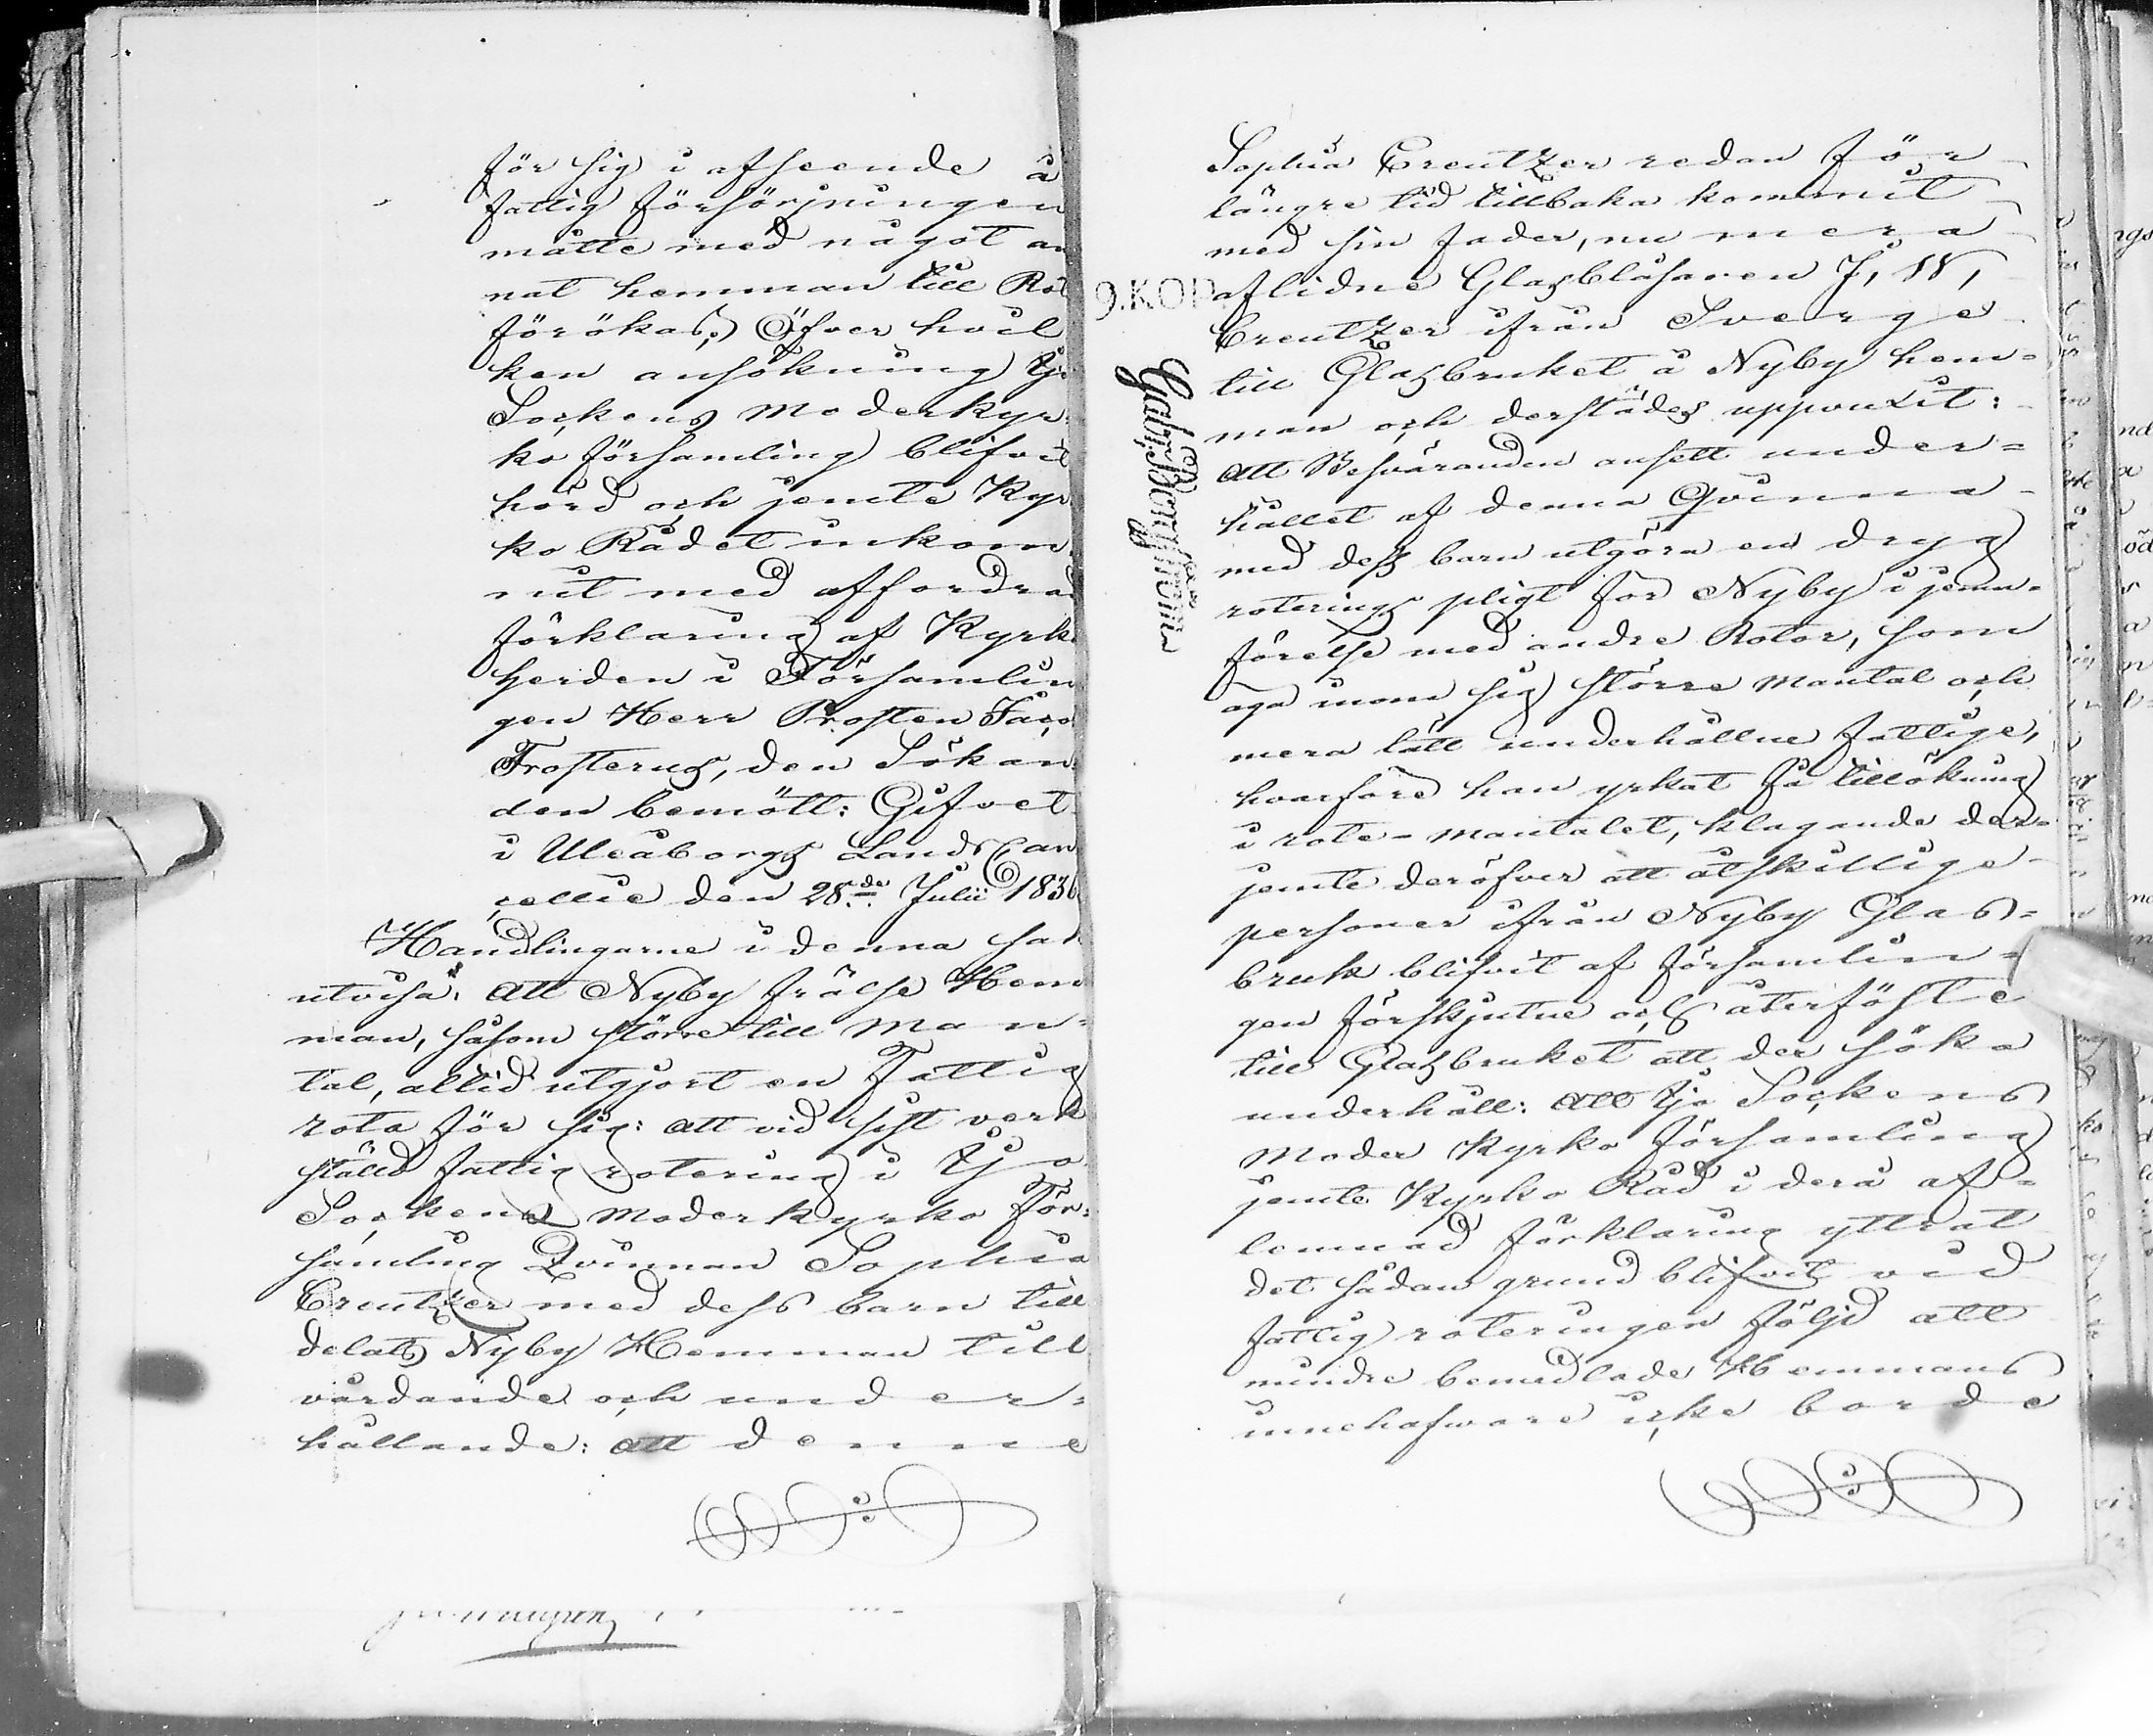 för sig i afseende å
fattig försörjningen
måtte med något an
nat hemman till Rot
förökas; Öfver hvil
ken ansökning Ijo
Sockens Moderkyr
ko församling blifvit
hörd och jemte Kyr
ko Rådet inkom
mit med affordrad
förklaring af Kyrko
herden i Församlin
gen Herr Prosten Jaco
Frosterus, den Sökan
den bemött: Gifvet
i Uleåborgs Lands Can
cellie den 28de Julii 1836
Handlingarne i denna sak
utvisa: att Nyby frälse Hem
man, såsom större till Man=
tal, altid utgjort en Fattig
rota för sig: att vid sist verk
ställd fattig rotering i Ijo
Sockens Moderkyrko För=
samling Qvinnan Sophia
Creutzer med dess barn till
delats Nyby Hemman till
vårdande och under=
hållande: att denne
Sophia Creutzer redan för
längre tid tillbaka kommit
med sin fader, nu mera
aflidne Glasblåsaren J, W,
Creutzer ifrån Sverge
till Glasbruket å Nyby hem=
man och derstädes uppvuxit:
att Besväranden ansett under=
hållet af denna Qvinna
med dess barn utgöra en dryg
roterings pligt för Nyby i jemn=
förelse med andre Rotor, som
äga inom sig större mantal och
mera lätt underhållne fattige,
hvarföre han yrkat få tillökning
i rote-mantalet, klagande der=
jemte deröfver att åtskillige
personer ifrån Nyby Glas=
bruk blifvit af församlin=
gen förskjutne och återföste
till Glasbruket att der söka
underhåll: att Ijo Sockens
Moder Kyrko församling
jemte Kyrko Råd i derå af=
lemnad förklaring yttrat
det sådan grund blifvit vid
fattig roteringen följd att
mindre bemedlade Hemmans
innehafvare icke borde
9.KOP.
Gabr. Bergbom